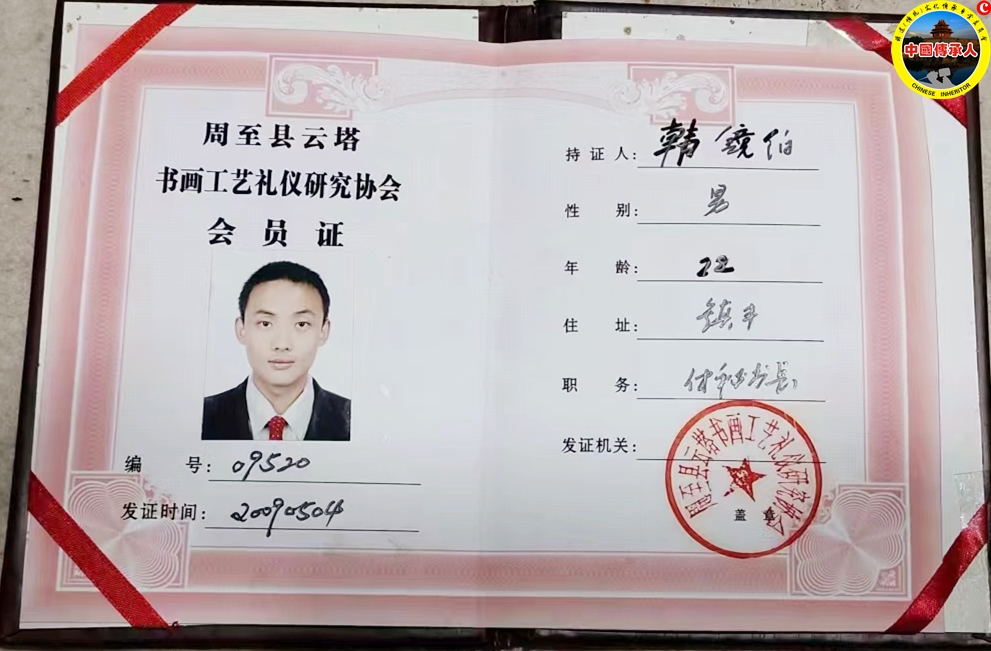 周至县云塔
书画工艺礼仪研究协会
会员证
编 号：09520
发证时间：20090504
持证人：韩镜伯
性 别：男
年 龄：22
住 址：镇丰
职 务：付秘书长
发证机关：
周至县云塔书画工艺礼仪研究协会
盖 章
中國傳承人
CHINESE INHERITOR